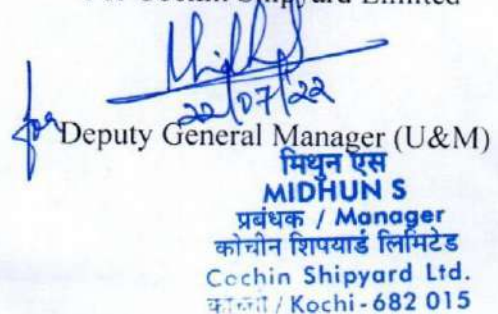 Cochin Shipyard Limited
Midhun S
22/07/22
for Deputy General Manager (U&M)
मिथुन एस
MIDHUN S
प्रबंधक / Manager
कोचीन शिपयार्ड लिमिटेड
Cochin Shipyard Ltd.
/ Kochi - 682 015